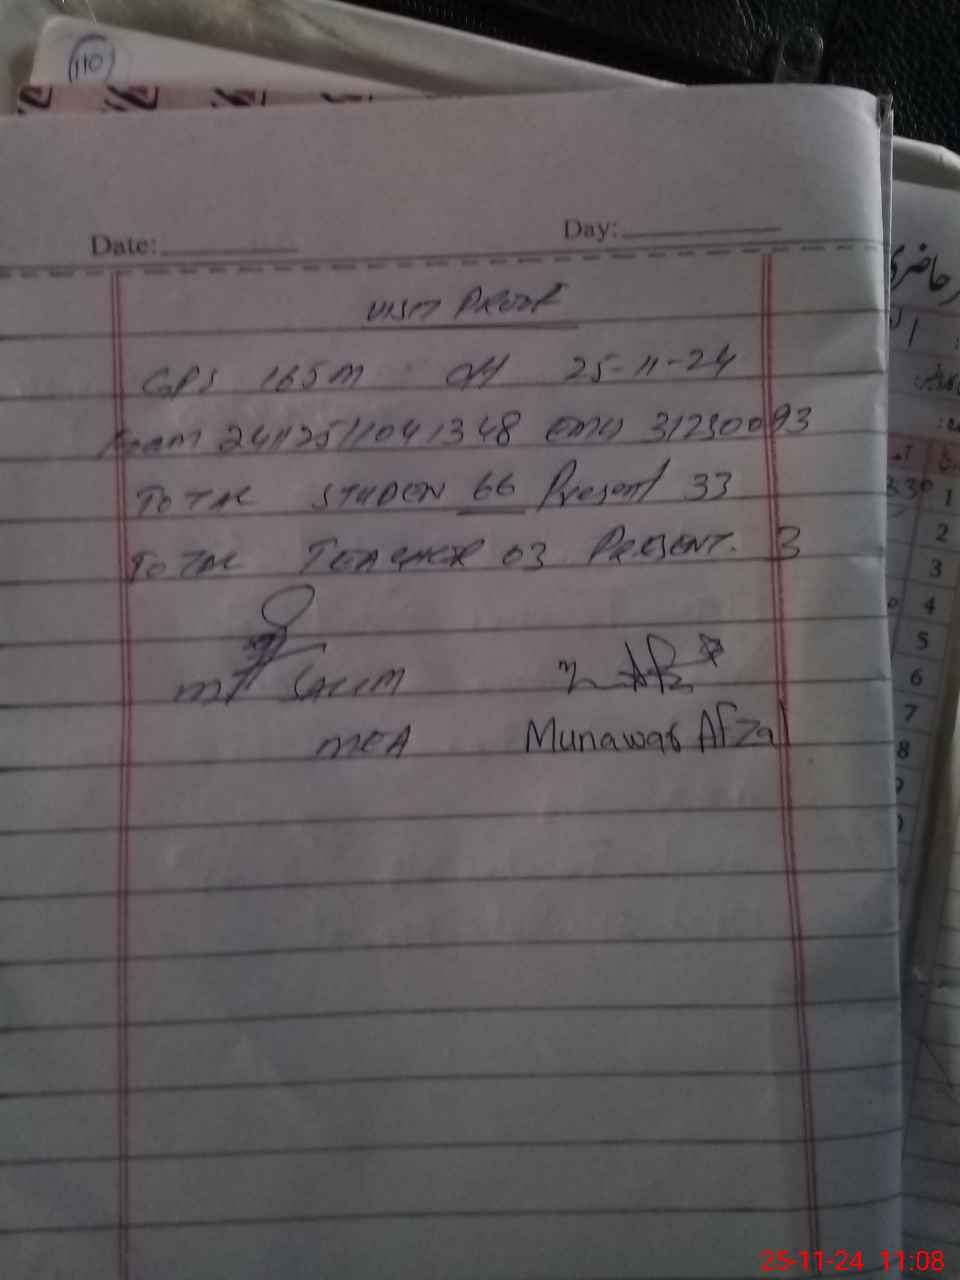 110
Date:
Day:
VISIT PROOF
GPS 165M on 25-11-24
24112511041348 EMIS 31230093
TOTAL STUDEN 66 Present 33
TOTAL TEACHER 03 PRESENT. 3
SALIM
MEA Munawar Afzal
حاضری
1
2
3
4
5
6
7
8
25-11-24 11:08